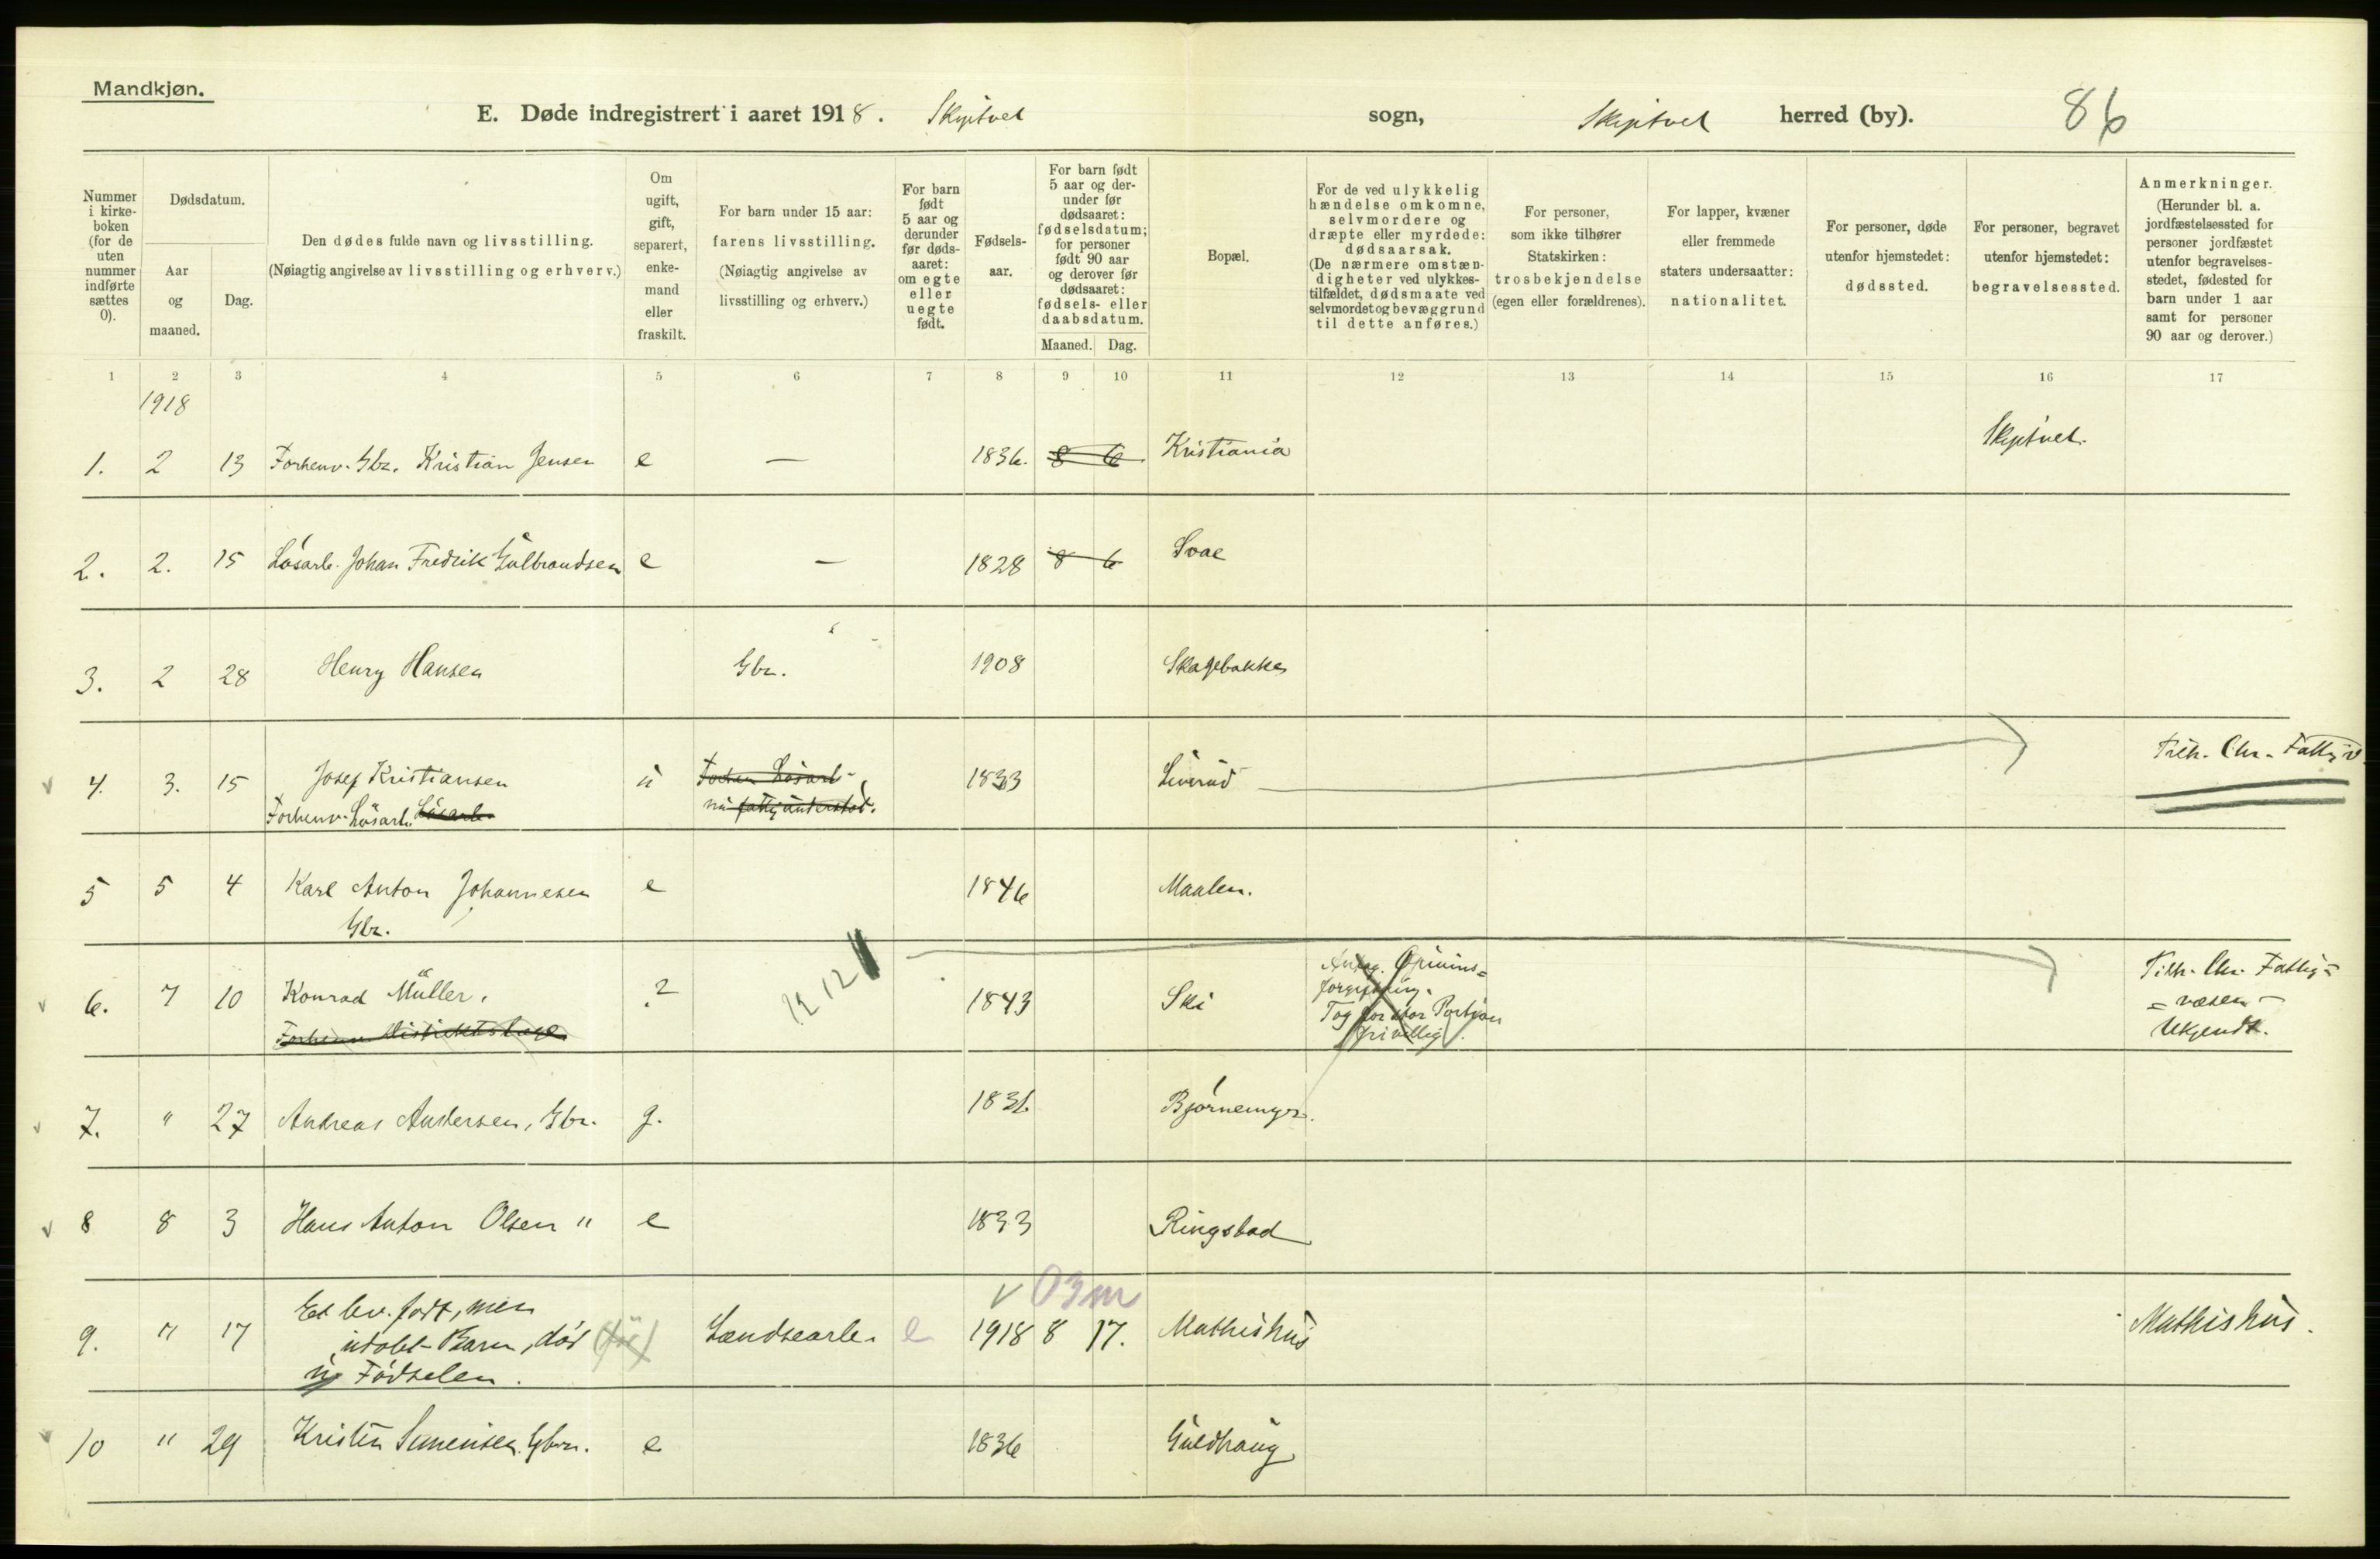 Mandkjøn.
E. Døde indregistrert i aaret 1918. Skiptvet sogn, Skiptvet herred (by). 86
Nummer i kirke- boken (for de uten nummer indførte sættes 0).
Dødsdatum.
Aar og maaned.
Dag.
Den dødes fulde navn og livsstilling.
(Nøiagtig angivelse av livsstilling og erhverv.)
Om ugift, gift, separert, enke- mand eller fraskilt.
For barn under 15 aar:
farens livsstilling.
(Nøiagtig angivelse av
livsstilling og erhverv.)
For barn født 5 aar og derunder før døds- aaret: om egte eller uegte født.
Fødsels- aar.
For barn født 5 aar og der- under før dødsaaret: fødselsdatum; for personer født 90 aar og derover før dødsaaret: fødsels- eller daabsdatum.
Maaned. Dag.
Bopæl.
For de ved ulykkelig hændelse omkomne, selvmordere og dræpte eller myrdede: dødsaarsak. (De nærmere omstæn- digheter ved ulykkes- tilfældet, dødsmaate ved selvmordet og bevæggrund til dette anføres.)
For personer, som ikke tilhører Statskirken: trosbekjendelse (egen eller forældrenes).
For lapper, kvæner eller fremmede staters undersaatter: nationalitet.
For personer, døde utenfor hjemstedet: dødssted.
For personer, begravet utenfor hjemstedet: begravelsessted.
Anmerkninger. (Herunder bl. a. jordfæstelsessted for personer jordfæstet utenfor begravelses- stedet, fødested for barn under 1 aar samt for personer 90 aar og derover.)
1 2 3 4 5 6 7 8 9 10 11 12 13 14 15 16 17
1918
1. 2 13 Forhenv. Gbr. Kristian Jensen e — 1836. 8 6 Kristiania Skiptvet.
2. 2. 15 Løsarb. Johan Fredrik Gulbrandsen e — 1828 8 6 Svae
3. 2 28 Henry Hansen Gbr. 1908 Skagebakken
4. 3. 15 Josef Kristiansen u Forhen Løsarb. 1833 Liverud Tilh. Chr. Fattigv.
Forhenv. Løsarb. Løsarb. nu fattigunderstøt.
5 5 4 Karl Anton Johannesen e 1846 Maalen.
Gbr.
6. 7 10 Konrad Müller, ? 12 12 1843 Ski Antag. Opiums=
forgiftning. Tilh. Chr. Fattig=
Forhenv. Distriktslæge Tog for stor Portion = væsen -
frivillig. Ukjendt.
7. " 27 Andreas Andersen, Gbr. g. 1836 Bjørnemyr.
8 8 3 Hans Anton Olsen " e 1833 Ringstad
03m
9. " 17 Et lev. født, men
udøbt Barn, død Landsearb. e 1918 8 17. Mathishus Mathishus.
u/ Fødselen.
10 " 29 Kristen Simensen Gbr. e 1836 Guldhaug